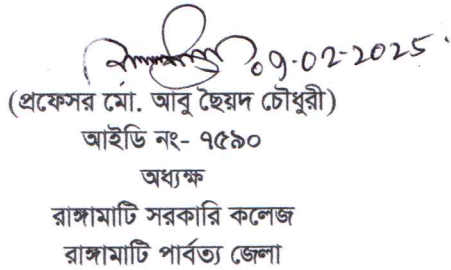 09-02-2025
(প্রফেসর মো. আবু ছৈয়দ চৌধুরী)
আইডি নং- ৭৫৯০
অধ্যক্ষ
রাঙ্গামাটি সরকারি কলেজ
রাঙ্গামাটি পার্বত্য জেলা